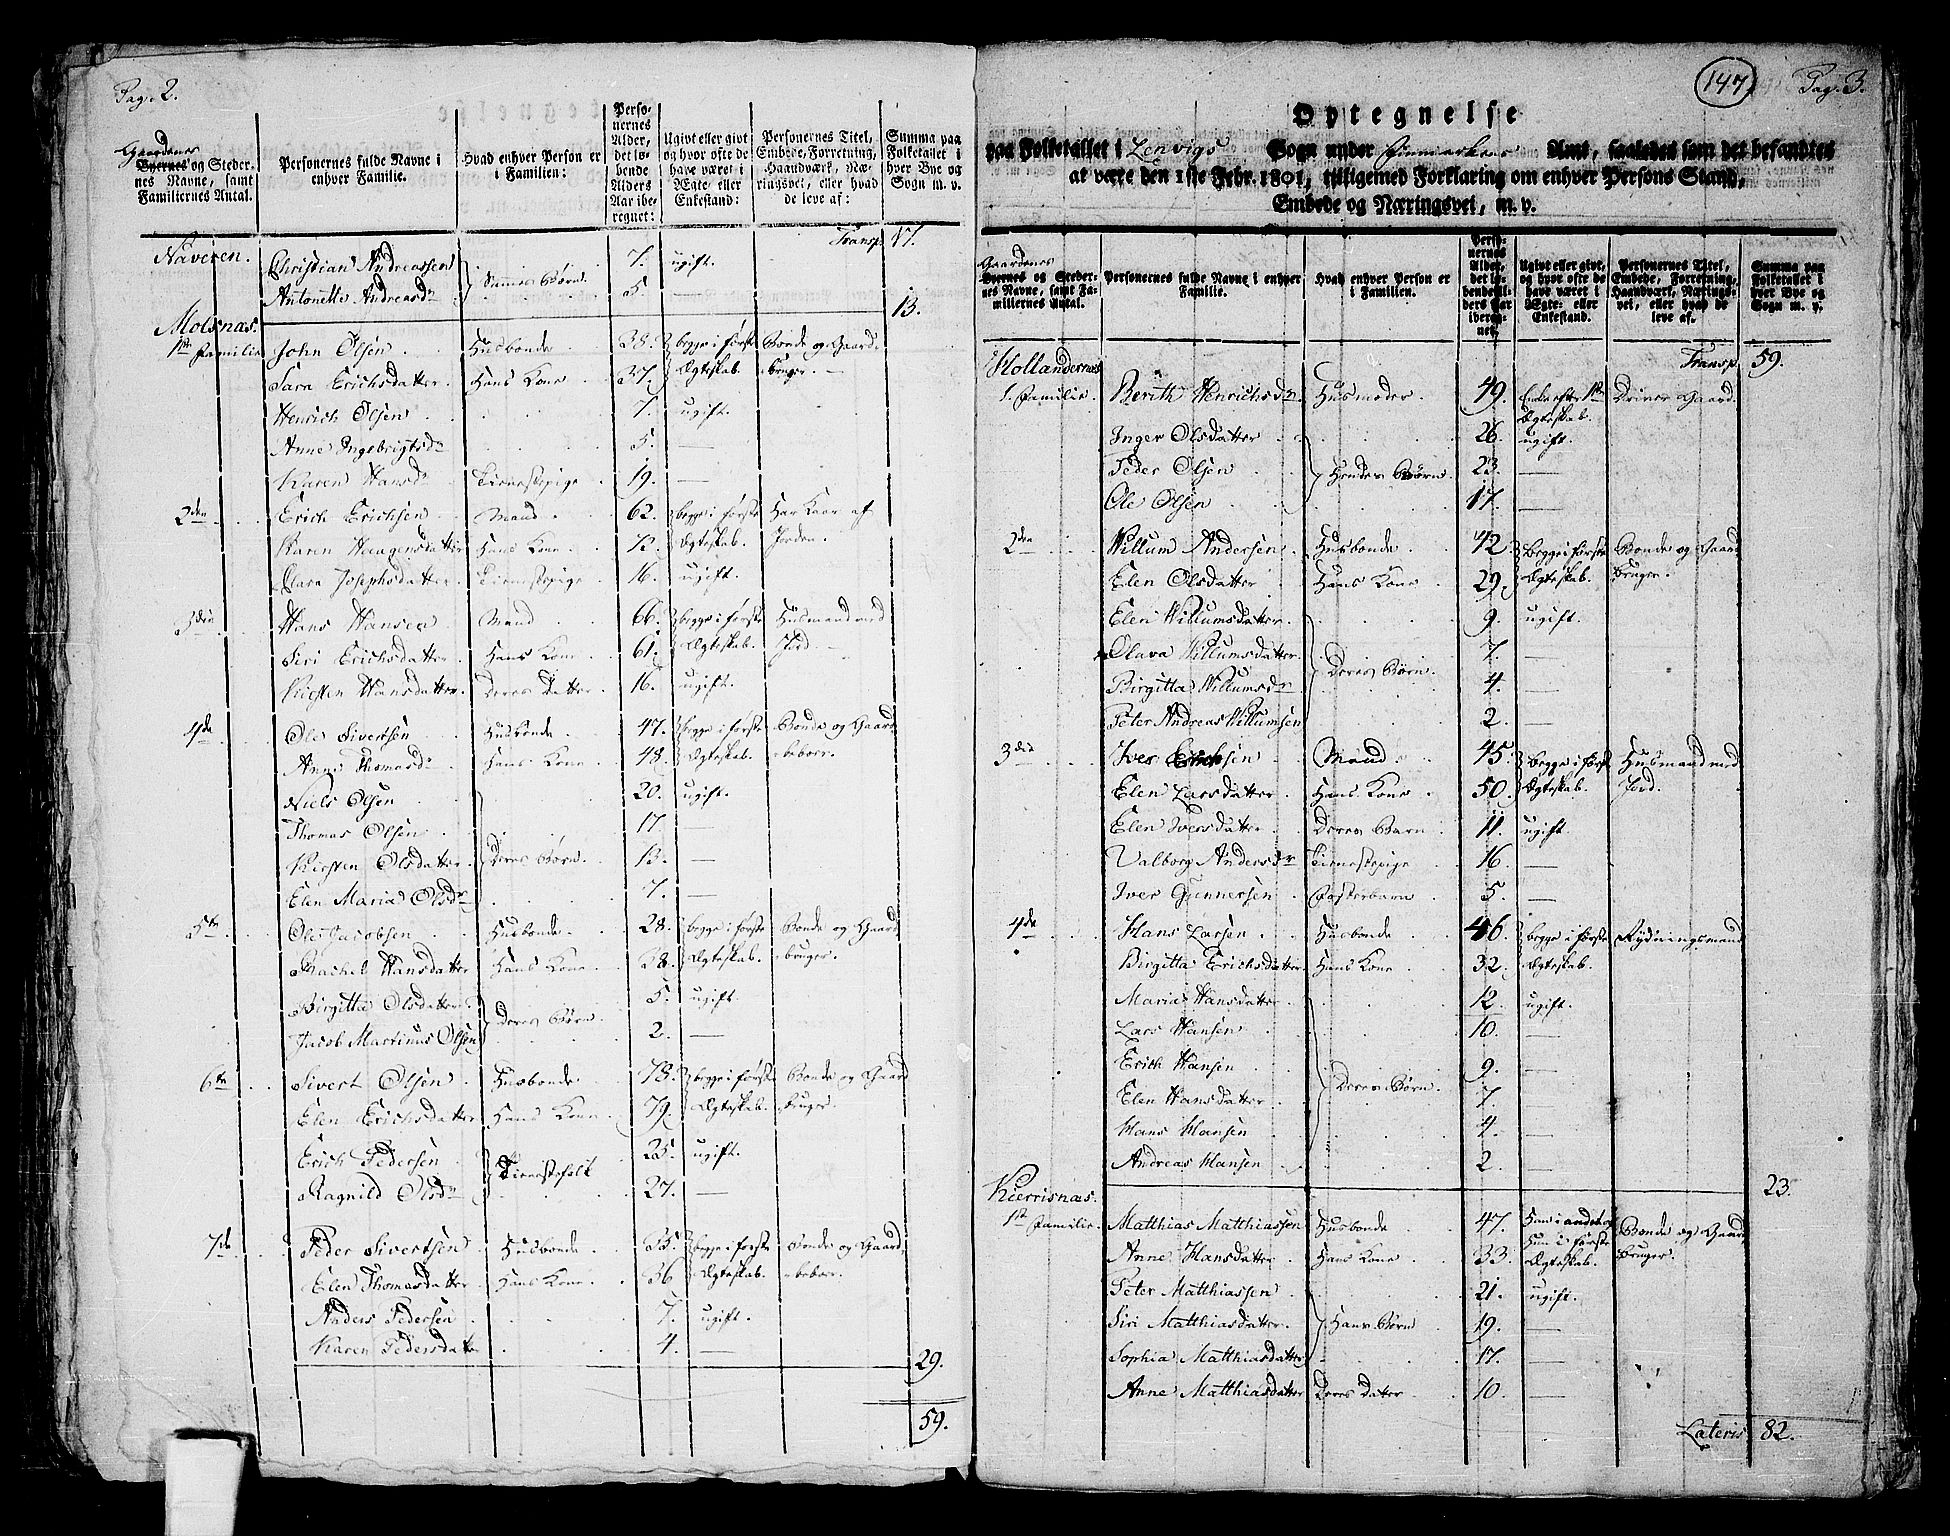 Pag. 2.
Gaardenes
Byernes og Steder-
nes Navne, samt
Familiernes Antal.
Personernes fulde Navne i
enhver Familie.
Hvad enhver Person er
i Familien:
Perso-
nernes
Alder,
det lø-
bende
Alders
Aar ibe-
regnet:
Ugivt eller givt
og hvor ofte de
have været i
Ægte- eller
Enkestand:
Personernes Titel,
Embede, Forretning,
Haandværk, Næ-
ringsvei, eller hvad
de leve af:
Summa paa
Folketallet i
hver Bye og
Sogn m. v.
Transp. 17.
Naveren. Christian Andreassen } Sammes Børn. 7. ugift.
Antonette Andreasdr 5. —
13.
Molsnas.
1ste Familie John Olsen Husbonde 38. begge i første Bonde og Gaard-
Sara Erichsdatter Hans Kone 37. Ægteskab. bruger. —
Henrich Olsen 7. ugift.
Anne Ingebrigtsdr 5. —
Karen Hansdr Tienestepige 19. —
2den Erich Erichsen Mand 62. begge i første Har Kaar af
Karen Haagensdatter Hans Kone 72. Ægteskab. Jorden.
Clara Josephsdatter Tienestepige 16. ugift.
3die Hans Hansen Mand 66. begge i første Husmand med
Siri Erichsdatter Hans Kone 61. Ægteskab. Jord. —
Kirsten Hansdatter Deres Datter 16. ugift.
4de Ole Sivertsen Husbonde 47. begge i første Bonde og Gaard-
Anne Thomasdr Hans Kone 48. Ægteskab. beboer.
Niels Olsen 20. ugift.
Thomas Olsen 17. —
Kirsten Olsdatter } Deres Børn. 13. —
Elen Maria Olsdr 7. —
5te Ole Jacobsen Husbonde 28. begge i første Bonde og Gaard-
Rachel Hansdatter Hans Kone 38. Ægteskab. bruger.
Birgitta Olsdatter } Deres Børn 5. ugift.
Jacob Martinus Olsen 2. —
6te Sivert Olsen Husbonde 78. begge i første Bonde og Gaard-
Elen Erichsdatter Hans Kone 79. Ægteskab. bruger.
Erich Pedersen } Tienestefolk 25. ugift.
Ragnild Olsdr 27. —
7de Peder Sivertsen Husbonde 35. begge i første Bonde og Gaard-
Elen Thomasdatter Hans Kone 36 Ægteskab. beboer.
Anders Pedersen 7. ugift.
Karen Pedersdatter 4. —
29.
59.
147 Pag. 3.
Optegnelse
paa Folketallet i Lenvigs Sogn under Finmarkens Amt, saaledes som det befandtes
at være den 1ste Febr. 1801, tilligemed Forklaring om enhver Persons Stand,
Embede og Næringsvei, m. v.
Gaardenes
Byernes og Steder-
nes Navne, samt Fa-
miliernes Antal.
Personernes fulde Navne i enhver
Familie.
Hvad enhver Person er
i Familien.
Perso-
nernes
Alder,
det lø-
bende Al-
ders Aar
iberegnet.
Ugivt eller givt,
og hvor ofte de
have været i
Ægte- eller
Enkestand.
Personernes Titel,
Embede, Forretning,
Haandværk, Nærings-
vei, eller hvad de
leve af.
Summa paa
Folketallet i
hver Bye og
Sogn m. v.
Hollandernæs Transp. 59.
1. Familie Berith Henrichsdr Husmoder 49. Enke efter 1ste Driver Gaard.
Ægteskab.
Inger Olsdatter 26. ugift.
Peder Olsen } Hendes Børn 23. —
Ole Olsen 17. —
2den Willum Andersen Husbonde 42. begge i første Bonde og Gaard-
Elen Olsdatter Hans Kone 29. Ægteskab. bruger.
Elen Willumsdatter 9. ugift.
Olava Willumsdatter } Deres Børn 7. —
Birgitta Willumsdr 4. —
Peter Andreas Willumsen 2. —
3die Iver Erichsen Mand 45. begge i først Husmand med
Elen Larsdatter Hans Kone 50. Ægteskab. Jord.
Elen Iversdatter Deres Barn 11. ugift.
Valborg Andersdr Tienestepige 16. —
Iver Gunnersen Fosterbarn 5. —
4de Hans Larsen Husbonde 46. begge i første Rydningsmand
Birgitta Erichsdatter Hans Kone 32. Ægteskab.
Maria Hansdatter 12. ugift.
Lars Hansen 10. —
Erich Hansen 9. —
Elen Hansdatter } Deres Børn 7. —
Hans Hansen 4. —
Andreas Hansen 2. —
23.
Kierrisnæs.
1ste Familie. Matthias Matthiassen Husbonde 47. Han i andet og Bonde og Gaard-
Hun i første bruger.
Anne Hansdatter Hans Kone 33. Ægteskab.
Peter Matthiassen 21. ugift.
Siri Matthiasdatter } Hans Børn 19. —
Sophia Matthiasdatter 17. —
Anne Matthiasdatter Deres datter 10. —
Lateris 82.